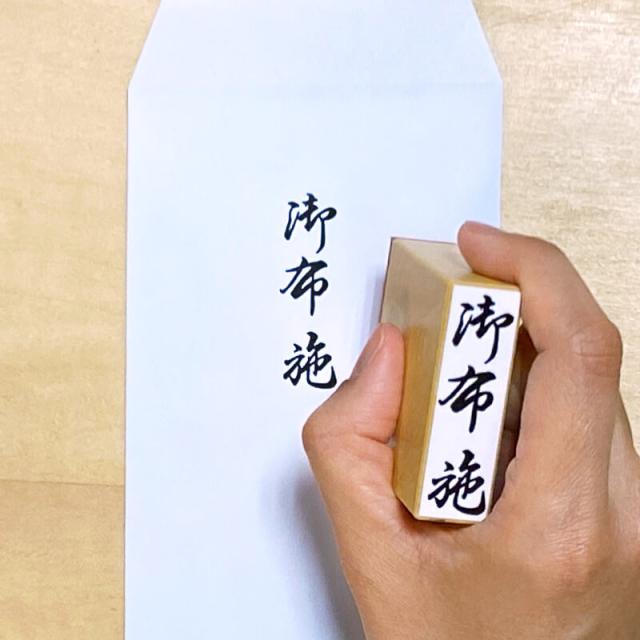 御布施
御布施